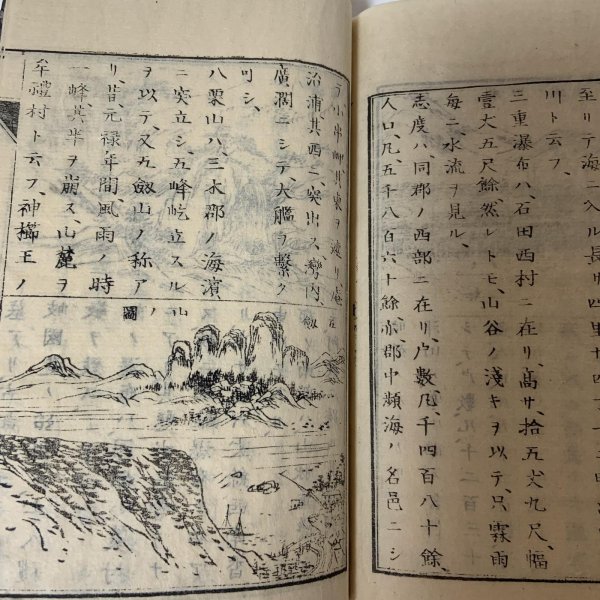 至リテ海ニ入ル長サ四里十四
川ト云フ、
三重瀑布ハ、石田西村ニ在リ、高サ、拾五丈九尺、幅
壹丈五尺餘、然レトモ、山谷ノ淺キヲ以テ、只霖雨
毎ニ、水流ヲ見ル、
志度ハ、同郡ノ西部ニ在リ、户數、凡、千四百八十餘、
人口、凡、五千八百六十餘、亦郡中瀕海ノ名邑ニシ
小串岬其東ヲ遮リ、庵
治浦、其西ニ突出ス、灣内、
廣濶ニシテ、大艦ヲ繫ク
可シ、
八栗山ハ、三木郡ノ海濱
ニ突立シ、五峰屹立スル
ヲ以テ、又五劔山ノ称ア
リ、昔、元禄年間、風雨ノ時
一峰、其半ヲ崩ス、山麓ヲ
牟禮村ト云フ、神櫛王ノ
圖